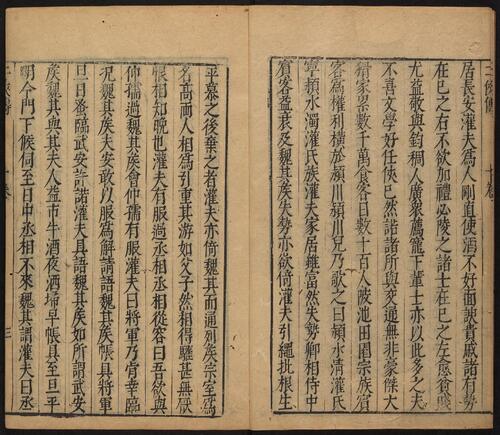 居長安灌夫為人剛直使酒不好面諛貴戚諸有勢
在已之右不欲加禮必陵之諸士在已之左愈貧賤
尤益敬與鈞稠人廣衆薦寵下輩士亦以此多之夫
不喜文學好任俠已然諾諸所與交通無非豪傑大
猾家累數千萬食客日數十百人陂池田園宗族賓
客為權利橫於潁川潁川兒乃歌之曰潁水清灌氏
寧潁水濁灌氏族灌夫家居雖富然失勢卿相侍中
賓客益衰及魏其矦失勢亦欲倚灌夫引繩批根生
平慕之後棄之者灌夫亦倚魏其而通列矦宗室為
名高兩人相為引重其游如父子然相得驩甚無厭
恨相知晩也灌夫有服過丞相丞相從容曰吾欲與
仲孺過魏其矦會仲孺有服灌夫曰將軍乃肯幸臨
況魏其矦夫安敢以服為解請語魏其矦帳具將軍
旦日蚤臨武安許諾灌夫具語魏其矦如所謂武安
矦魏其與其夫人益市牛酒夜洒埽早帳具至旦平
明令門下候伺至日中丞相不來魏其謂灌夫曰丞
三